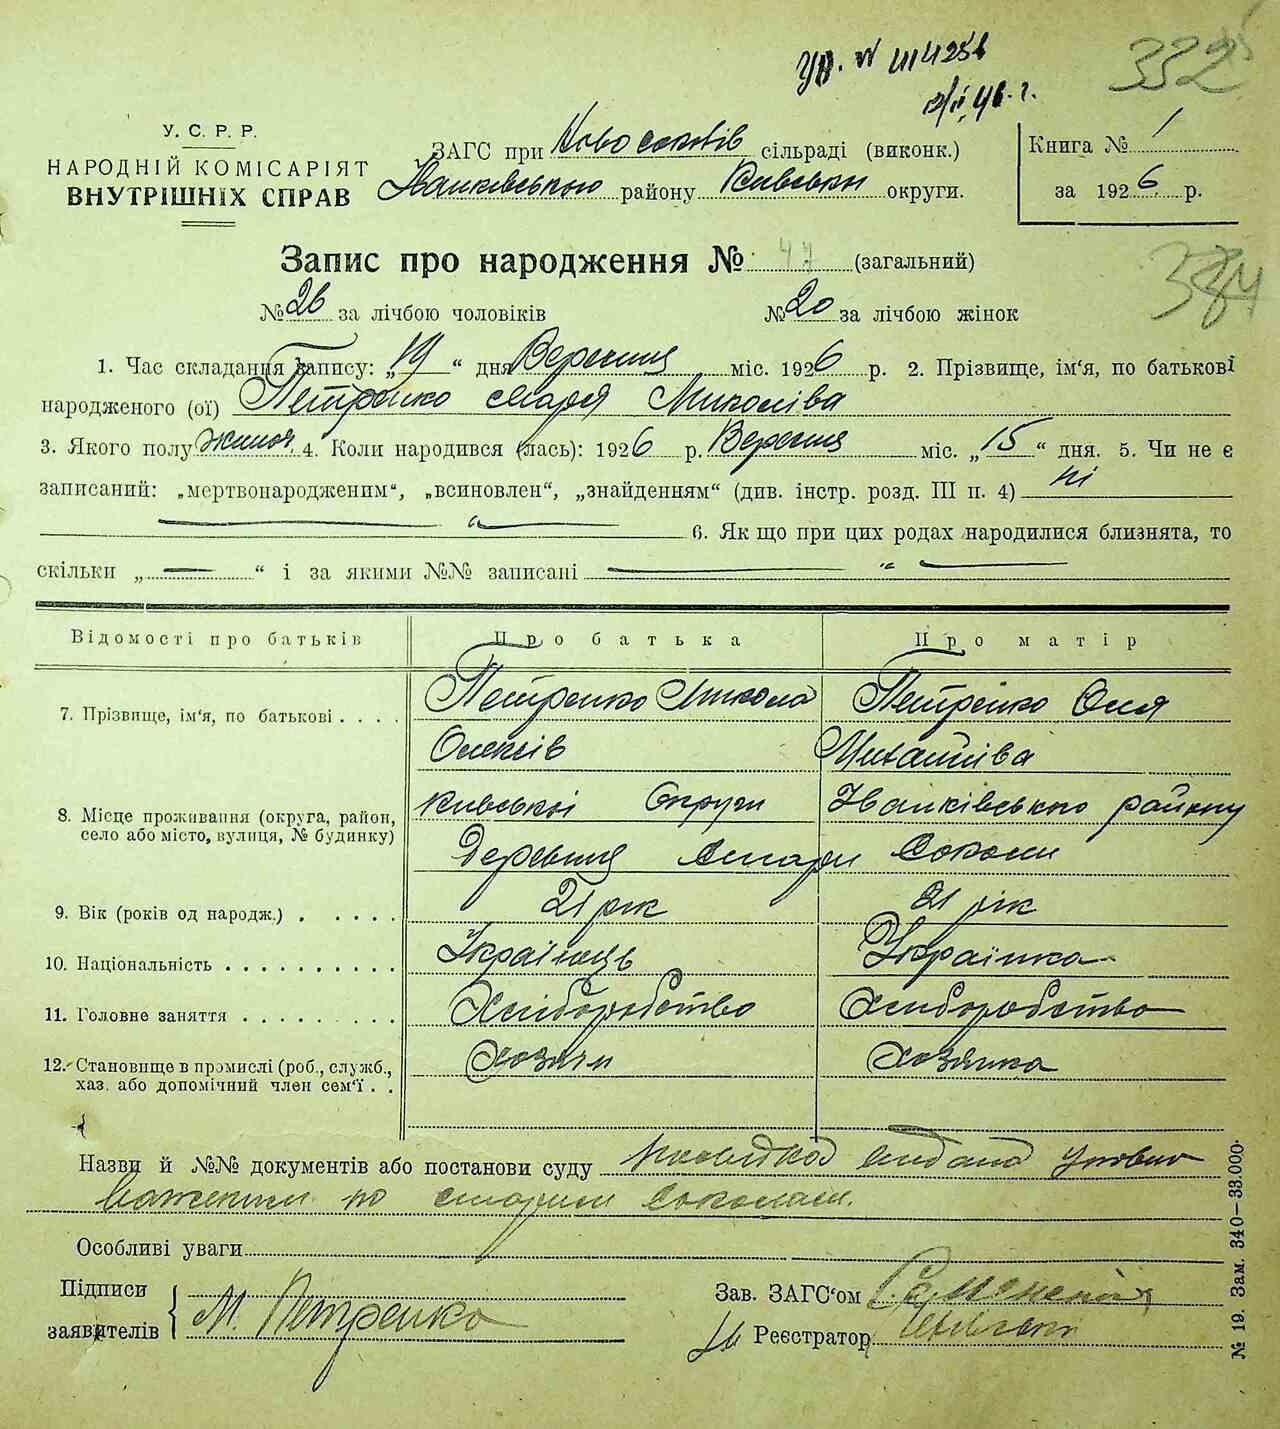 332
У. С. Р. Р.
НАРОДНІЙ КОМІСАРІЯТ
ВНУТРІШНІХ СПРАВ
ЗАГС при сільраді (виконк.)
Іванківського району Київськи округи.
Книга № 1
за 1926 р.
Запис про народження № 47 (загальний)
384
№ 26 за лічбою чоловіків № 20 за лічбою жінок
1. Час складання запису: „19“ дня Вересния міс. 1926 р. 2. Прізвище, ім'я, по батькові
народженого (ої) Петренко Марія Миколіва
3. Якого полу жиноч. 4. Коли народився (лась): 1926 р. Вересния міс. „15“ дня. 5. Чи не є
записаний: „мертвонародженим“, „всиновлен“, „знайденням“ (див. інстр. розд. III п. 4) ні
6. Як що при цих родах народилися близнята, то
скільки „ — “ і за якими №№ записані — „ —
Відомості про батьків Про батька Про матір
7. Прізвище, ім'я, по батькові . . . . Петренко Микола Петренко Оля
Олексів Михайліва
8. Місце проживання (округа, район, київської Округи Іванківського району
село або місто, вулиця, № будинку)
деревня Стари Соколи
9. Вік (років од народж.) . . . . . 21 рік 21 рік
10. Національність . . . . . . . . . Українець Українка
11. Головне заняття . . . . . . . . Хліборобство Хліборобство
12. Становище в промислі (роб., служб., хозяін хозяйка
хаз. або допомічний член сем'ї . .
Назви й №№ документів або постанови суду видана
по старим соколам.
Особливі уваги
Підписи
заявителів М. Петренко
Зав. ЗАГС'ом
Реєстратор
№ 19. Зам. 340—33.000.